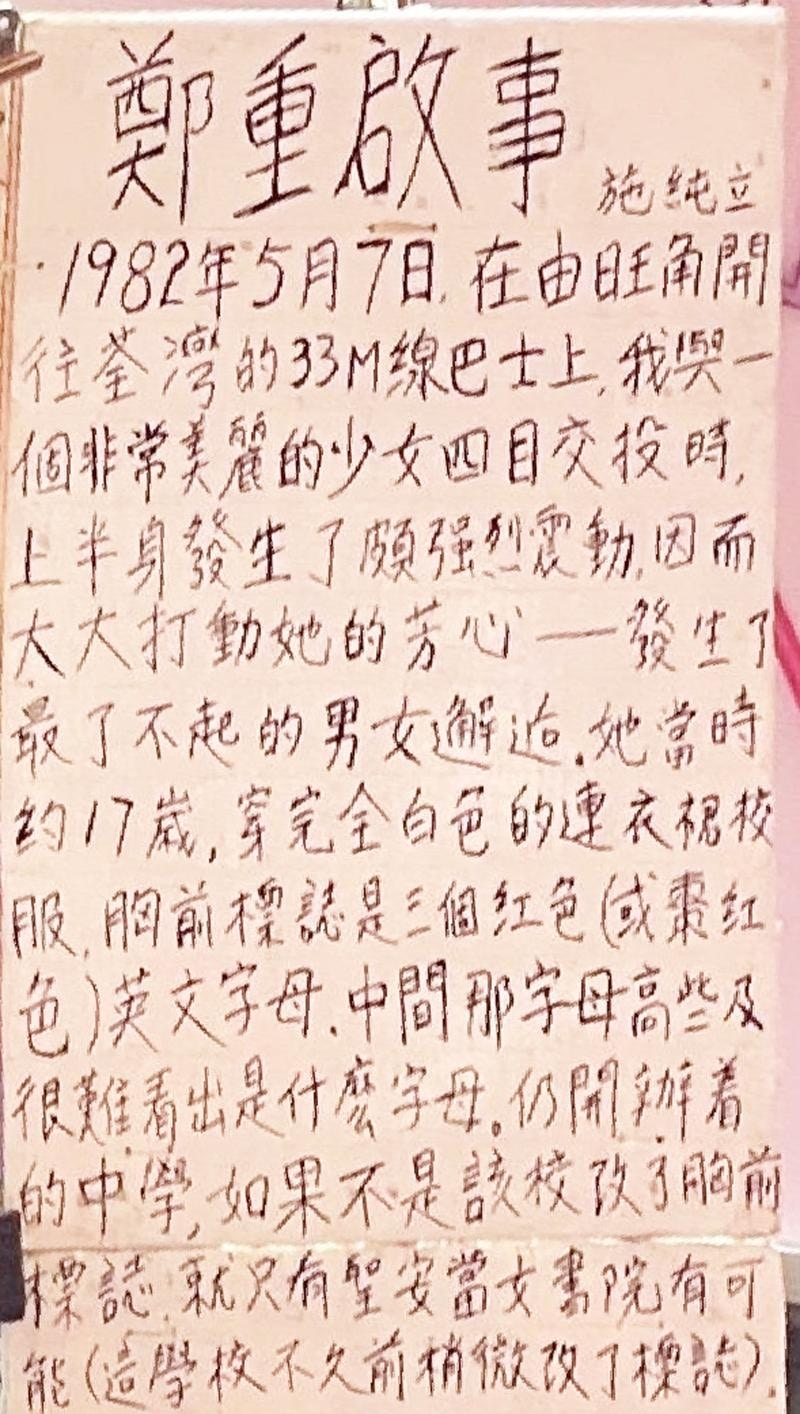 鄭重啟事
施純立
·1982年5月7日,在由旺角開
往荃灣的33M線巴士上,我與一
個非常美麗的少女四目交投時,
上半身發生了頗强烈震動,因而
大大打動她的芳心——發生了
最了不起的男女邂逅.她當時
約17歲,穿完全白色的連衣裙校
服,胸前標誌是三個紅色(或棗紅
色)英文字母.中間那字母高些及
很難看出是什麽字母。仍開辦着
的中學,如果不是該校改了胸前
標誌,就只有聖安當女書院有可
能(這學校不久前稍微改了標誌).